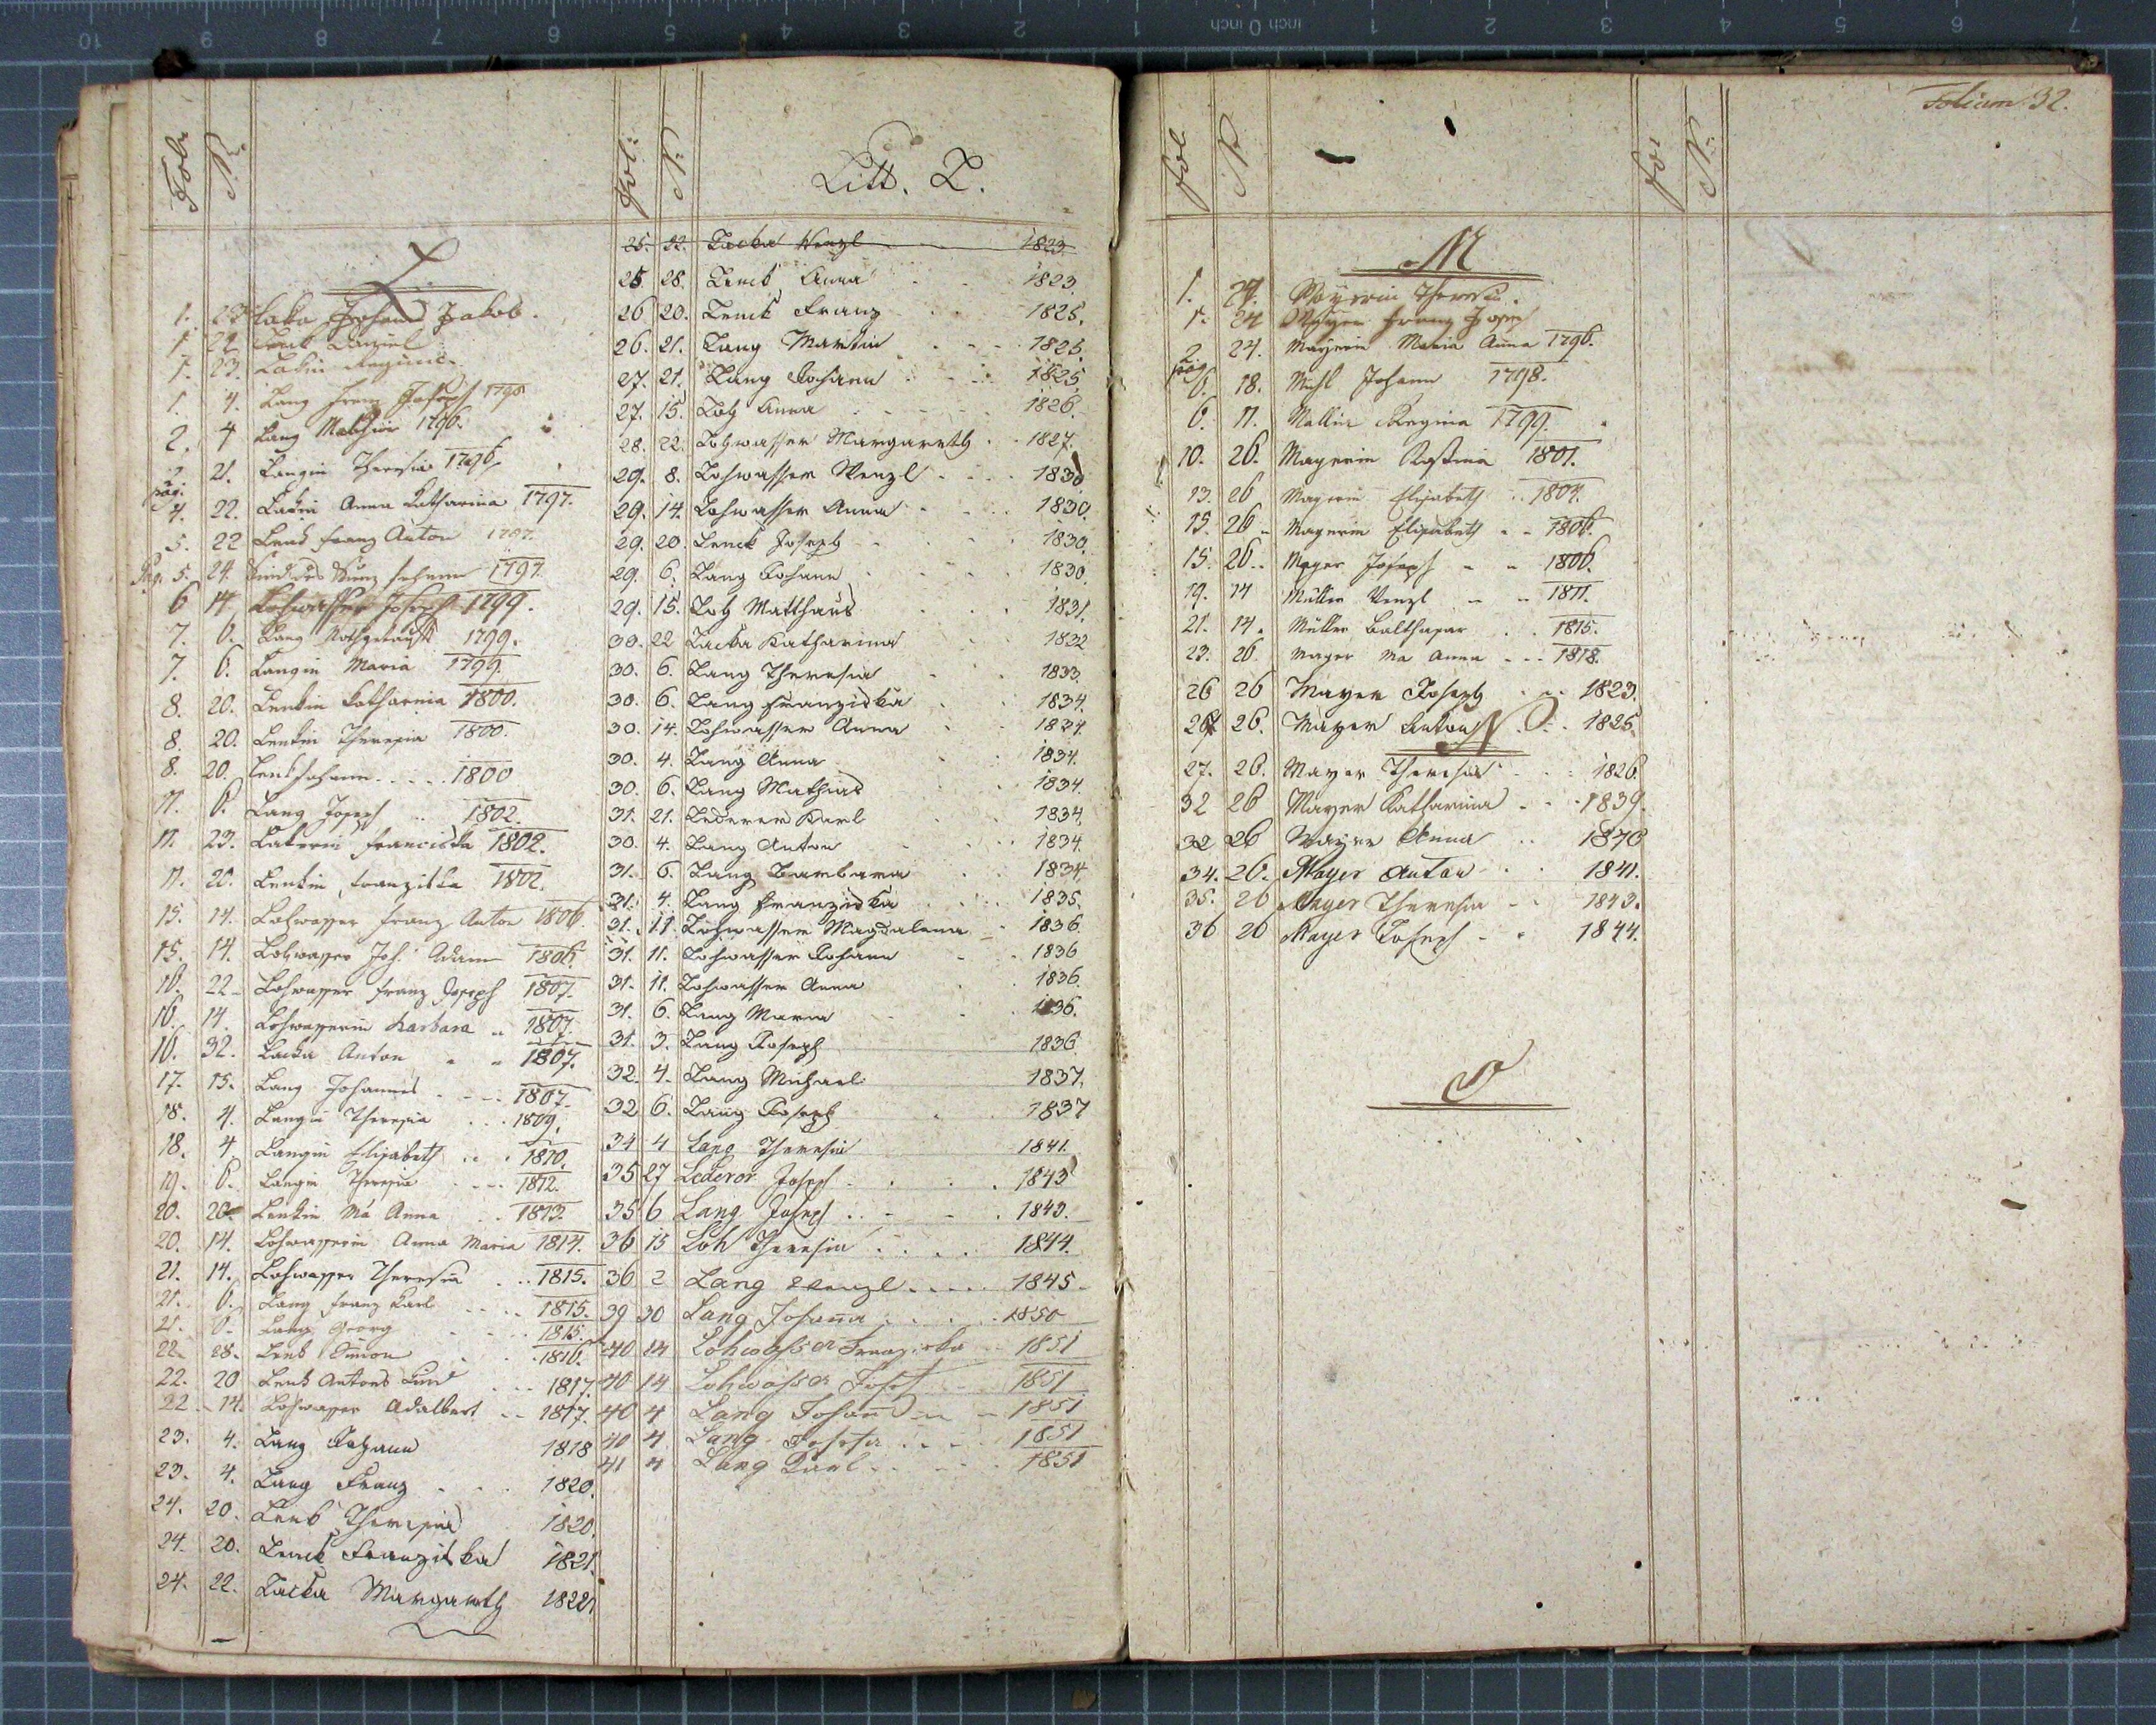 Fol: N:
L
1. 23 Laka Johann Jakob.
1. 22 Lenk Daniel
1. 23. Lakin Regina.
1. 4. Lang Franz Joseph 1796
2. 4 Lang Mathias 1796.
21. Langin Theresia 1796
pag:
4. 22. Lakin Anna Catharina 1797.
5. 22 Lenk Franz Anton 1797.
Pag. 5. 24. Kind des Johann 1797
6 14 Lohwasser Joseph 1799.
7. 6. Lang Nothgetauft 1799.
7. 6. Langin Maria 1799.
8. 20. Lenkin Catharina 1800.
8. 20. Lenkin Theresia 1800.
8. 20. Lenk Johann 1800
11. 6. Lang Joseph 1802.
11. 23. Lakerin Franciska 1802.
11. 20. Lenkin Franziska 1802.
15. 14. Lohwasser Franz Anton 1806.
15. 14. Lohwasser Joh: Adam 1806.
16. 22 Lohwasser Franz Joseph 1807.
16. 14. Lohwasserin Barbara 1807.
16. 32. Lacka Anton 1807.
17. 15. Lang Johannes 1807.
18. 4. Langin Theresia 1809.
18. 4 Langin Elisabeth 1810.
19. 6. Langin Theresia 1812.
20. 20. Lenkin Ma Anna 1813.
20. 14. Lohwasserin Anna Maria 1814.
21. 14. Lohwasser Theresia 1815.
21. 6. Lang Franz Karl 1815.
21. 6. Lang Georg 1815.
22. 28. Lenk Simon 1816.
22. 20 Lenk Antons Kind 1817.
22. 14. Lohwasser Adalbert 1817.
23. 4. Lang Johann 1818
23. 4. Lang Franz 1820.
24. 20. Lenk Theresia 1820.
24. 20. Lenck Franziska 1821.
24. 22. Lacka Margareth 1822
Fol: N:
Litt. L.
25. 32. Lacka Wenzl 1823
25 28. Lenck Anna 1823.
26 20. Lenck Franz 1825.
26. 21. Lang Martin 1825.
27. 21. Lang Johann 1825.
27. 15. Loh Anna 1826.
28. 22. Lohwasser Margareth 1827.
29. 8. Lohwasser Wenzl 1830
29. 14. Lohwasser Anna 1830.
29. 20. Lenck Joseph 1830.
29. 6. Lang Johann 1830.
29. 15. Loh Matthäus 1831.
30. 22 Lacka Katharina 1832
30. 6. Lang Theresia 1833.
30. 6. Lang Franziska 1834.
30. 14. Lohwasser Anna 1834.
30. 4. Lang Anna 1834.
30. 6. Lang Mathias 1834.
31. 21. Lederer Karl 1834.
30. 4. Lang Anton 1834
31. 6. Lang Barbara 1834
31. 4. Lang Franziska 1835.
31. 11. Lohwasser Magdalena 1836.
31. 11. Lohwasser Johann 1836
31. 11. Lohwasser Anna 1836.
31. 6. Lang Maria 1836.
31. 3. Lang Joseph 1836
32. 4. Lang Michael 1837.
32 6. Lang Joseph 1837
34 4 Lang Theresia 1841.
35 27 Lederer Joseph 1843
35 6 Lang Joseph 1843.
36 15 Loh Theresia 1844.
36 2 Lang Wenzl 1845
39 30 Lang Johanna 1850
40 14 Lohwasser Franziska 1851
40 14 Lohwasser Josef 1851
40 4 Lang Johann 1851
40 4 Lang Josefa 1851
41 4 Lang Karl 1851
Fol N:
M
1. 24. Mayerin Theresia.
1. 24 Mayer Franz Joseph
2. 24. Mayerin Maria Anna 1796.
pag
6. 18. Mühl Johann 1798.
6. 11. Mallin Regina 1799.
10. 26. Mayerin Rosina 1801.
13. 26 Mayerin Elisabeth 1804.
15. 26 Mayerin Elisabeth 1806.
15. 26. Mayer Joseph 1806.
19. 14 Müller Wenzl 1811.
21. 14. Müller Balthasar 1815.
23. 26. Mayer Ma Anna 1818.
26 26 Mayer Joseph 1823.
26 26. Mayer Anton 1825.
27. 26. Mayer Theresia 1826.
32 26 Mayer Katharina 1839.
32 26 Mayer Anna 1840
34. 26. Mayer Anton 1841.
35. 26 Mayer Theresia 1843.
36 26 Mayer Joseph 1844.
O
Fol N:
Folium 32.